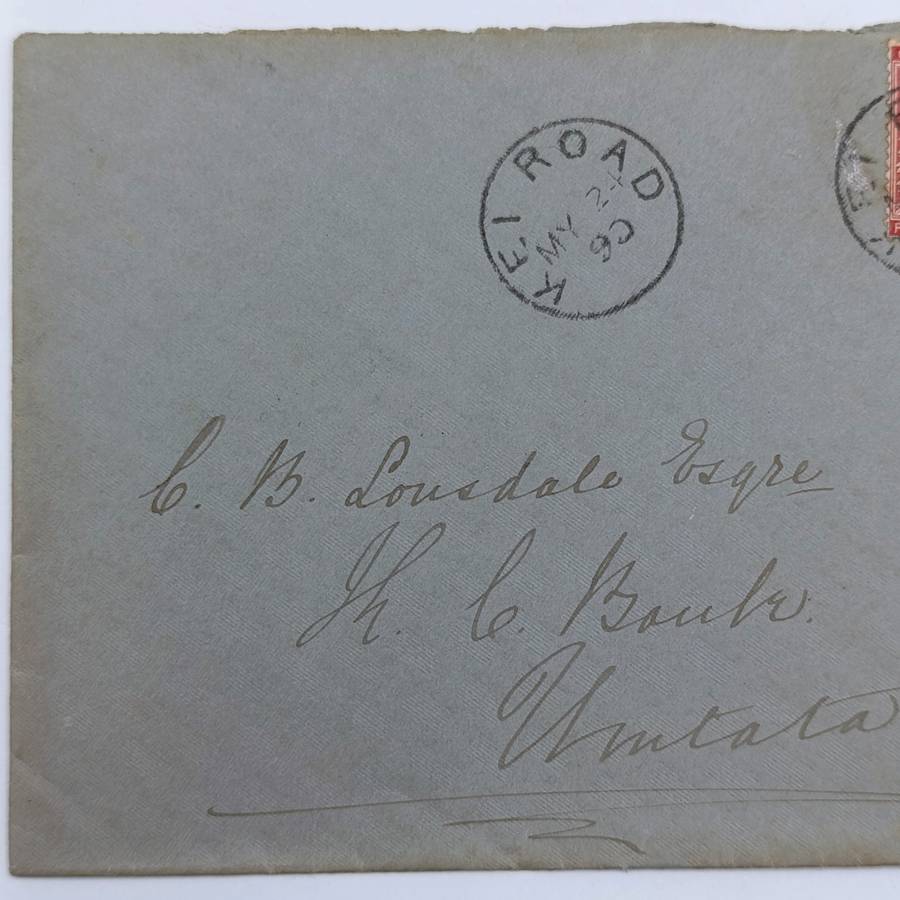 KEI ROAD
MY 24
06
KEI
C. B. Lonsdale Esqre
C. Bank.
Umtata